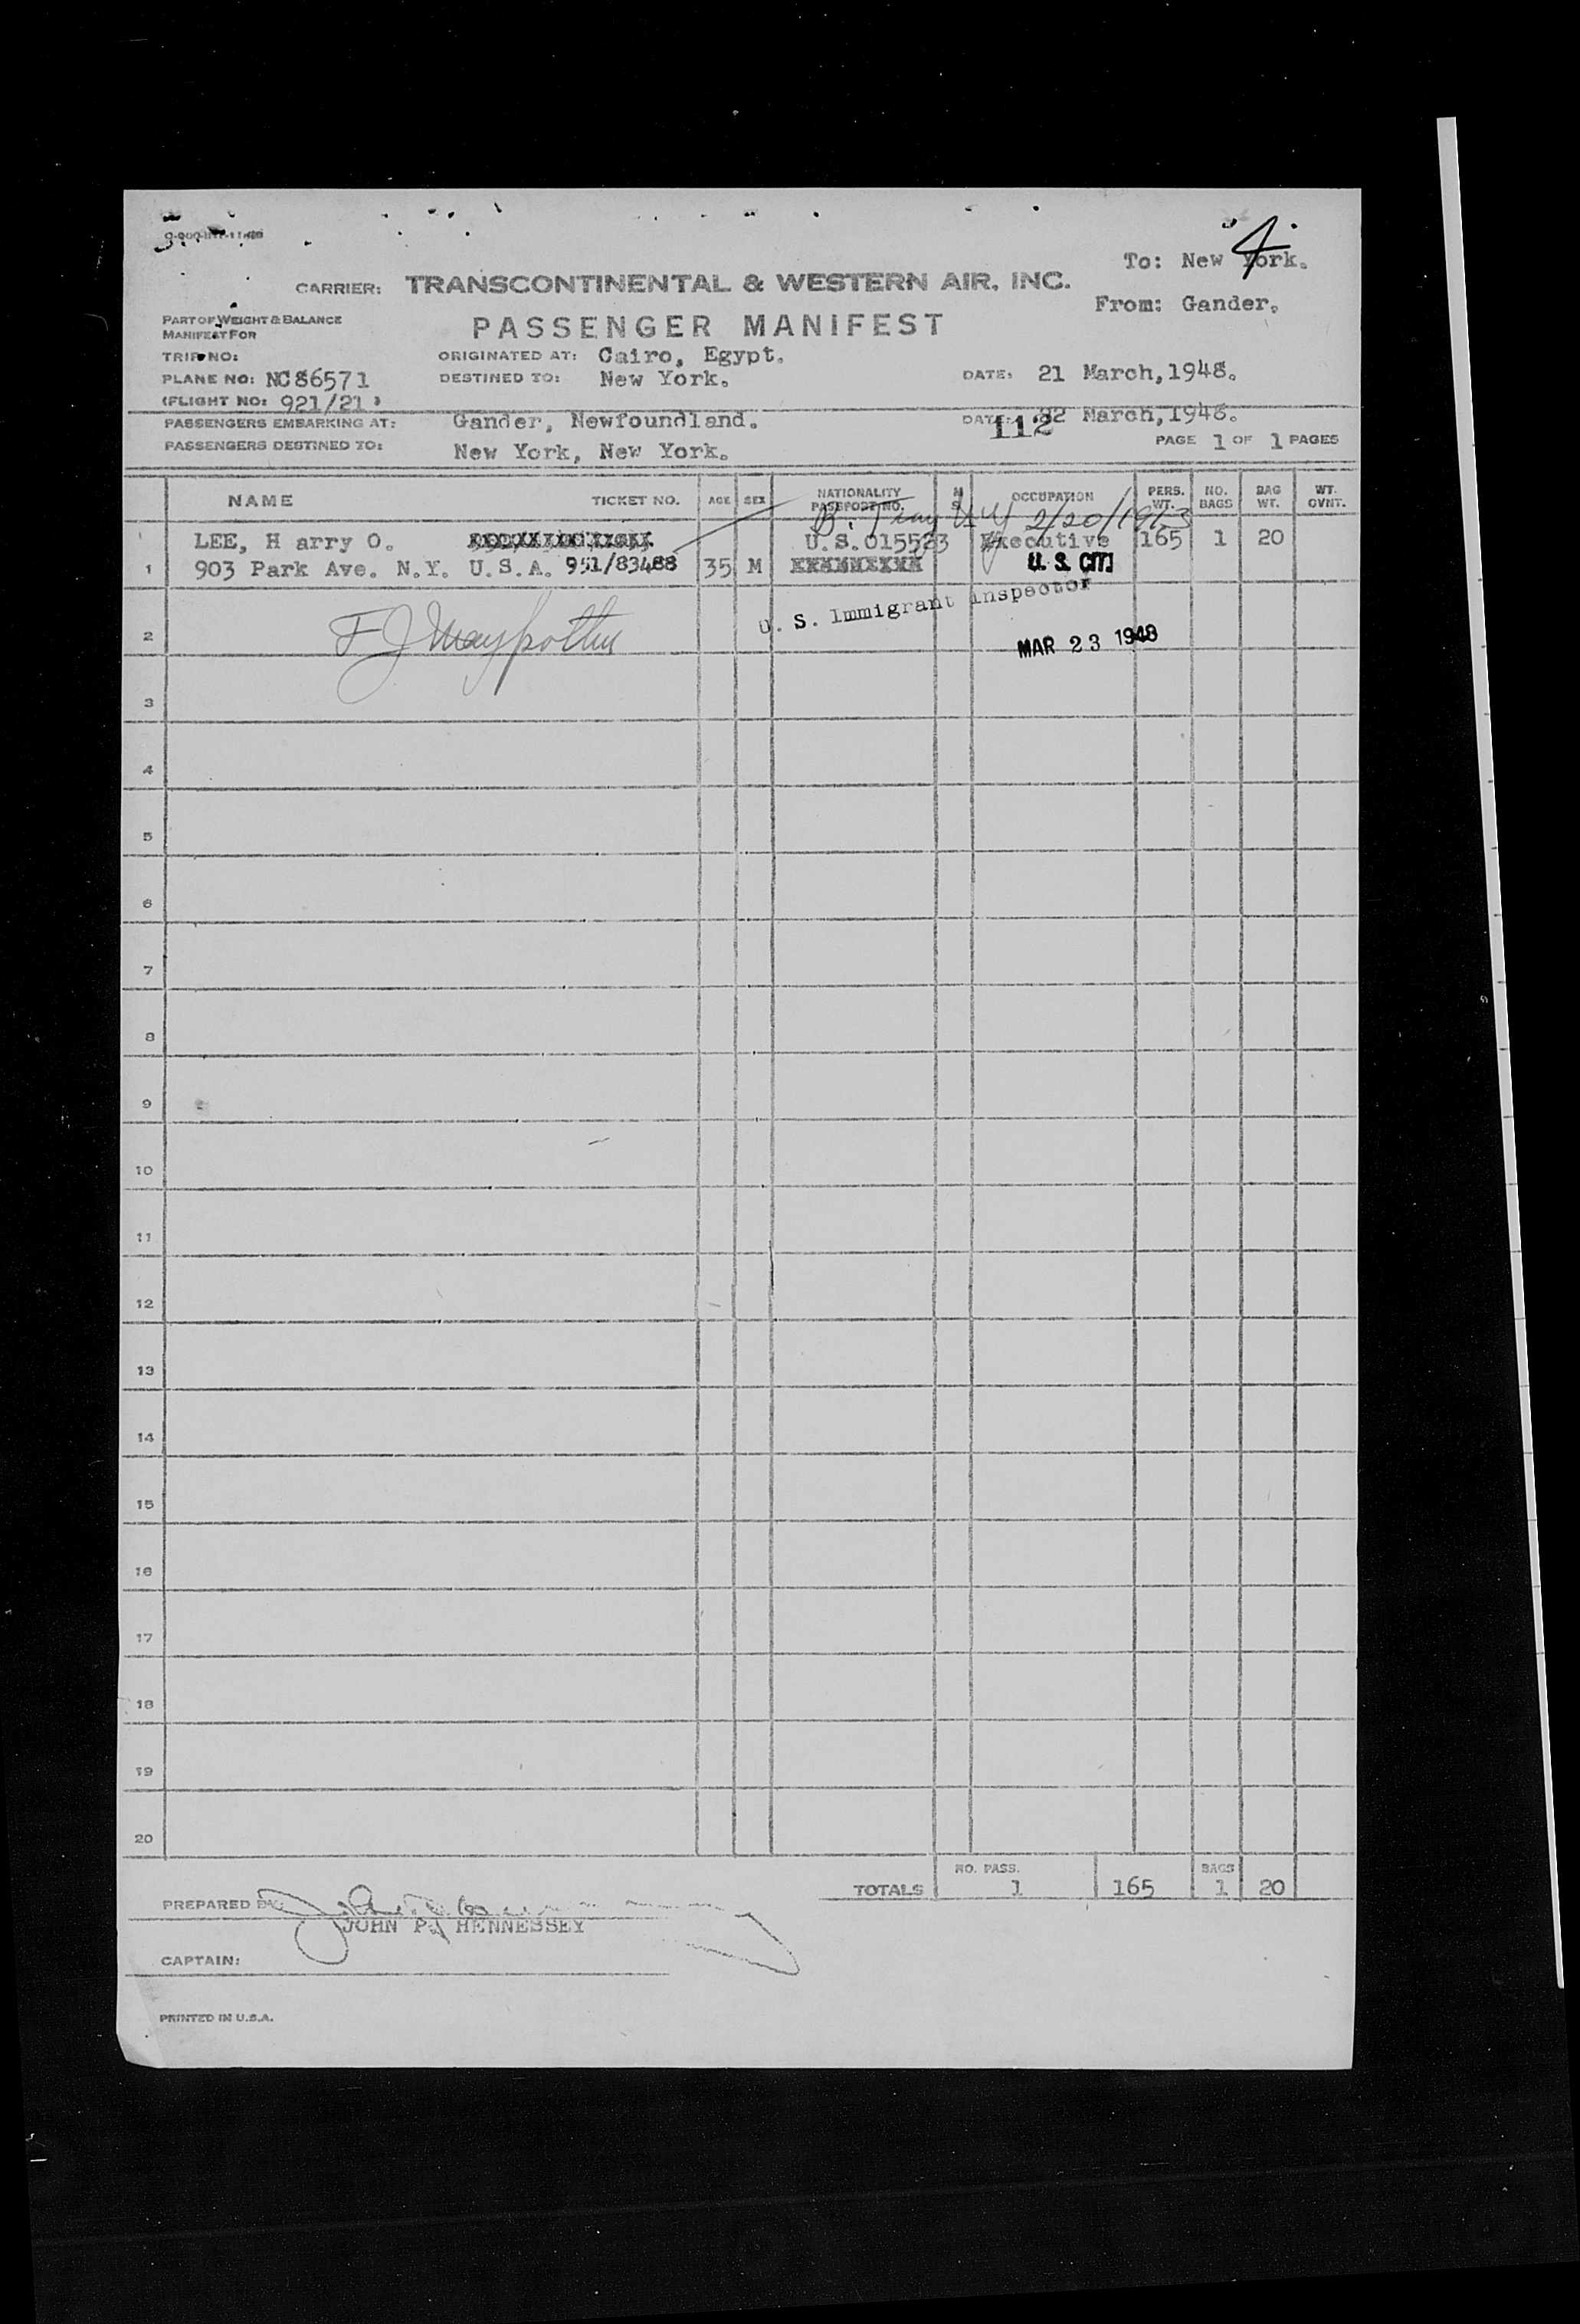 To: New York.
4
CARRIER: TRANSCONTINENTAL & WESTERN AIR, INC.
From: Gander.
PART OF WEIGHT & BALANCE
MANIFEST FOR
PASSENGER MANIFEST
TRIP NO:
ORIGINATED AT: Cairo, Egypt.
PLANE NO: NC86571
DESTINED TO: New York.
DATE: 21 March, 1948.
(FLIGHT NO: 921/21)
PASSENGERS EMBARKING AT: Gander, Newfoundland.
DATE: 22 March, 1948.
112
PASSENGERS DESTINED TO: New York, New York.
PAGE 1 OF 1 PAGES
NAME TICKET NO. AGE SEX NATIONALITY PASSPORT NO. M S OCCUPATION PERS. WT. NO. BAGS BAG WT. WT. GVNT.
B. Troy N Y 2/20/1913
LEE, H arry O. U.S.015523 Executive 165 1 20
1 903 Park Ave. N.Y. U.S.A. 951/83488 35 M U. S. CITI
U. S. Immigrant Inspector
2
MAR 23 1948
3
4
5
6
7
8
9
10
11
12
13
14
15
16
17
18
19
20
NO. PASS. BAGS
TOTALS 1 165 1 20
PREPARED BY:
JOHN P. HENNESSEY
CAPTAIN:
PRINTED IN U.S.A.